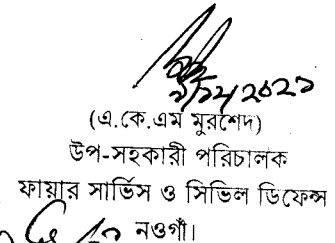 (এ.কে.এম মুরশেদ)
উপ-সহকারী পরিচালক
ফায়ার সার্ভিস ও সিভিল ডিফেন্স
নওগাঁ।